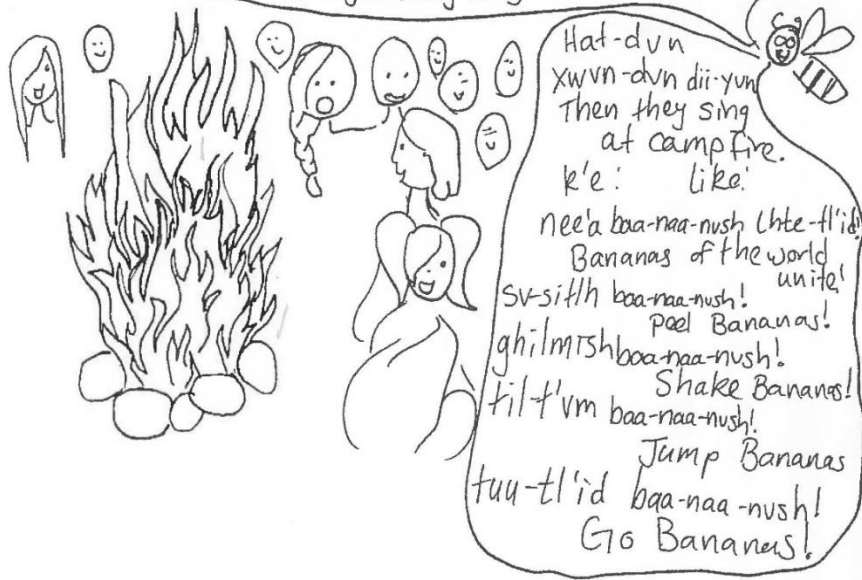 Hat-dvn
xwvn-dvn dii-yvn
Then they sing
at campfire.
k'e: like:
nee'a baa-naa-nush lhte-tl'id!
Bananas of the world
unite!
sv-sitlh baa-naa-nush!
Peel Bananas!
ghilmish baa-naa-nush!
Shake Bananas!
til-t'vm baa-naa-nush!
Jump Bananas
tuu-tl'id baa-naa-nush!
Go Bananas!